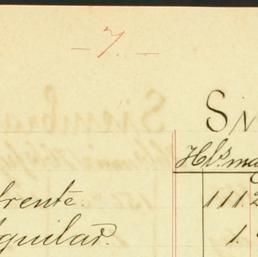 - 7. -
SN
Hb.s ma
frente. 111.2
Aguilar. 1.